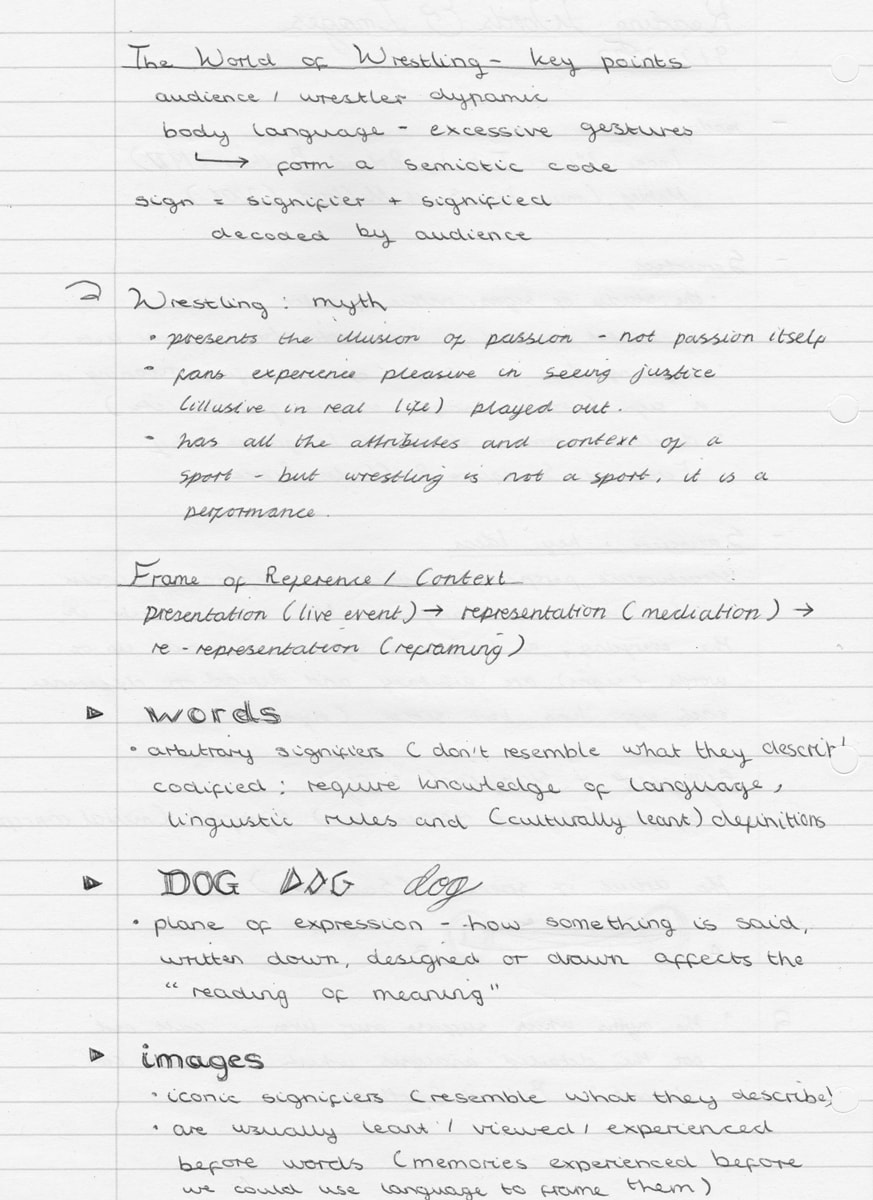 The World of Wrestling - key points
audience / wrestler dynamic
body language - excessive gestures
→ form a semiotic code
sign = signifier + signified
decoded by audience
Wrestling : myth
• presents the illusion of passion - not passion itself
• fans experience pleasure in seeing justice
(illusive in real life) played out.
• has all the attributes and context of a
sport - but wrestling is not a sport, it is a
performance.
Frame of Reference / Context
presentation (live event) → representation (mediation) →
re-representation (reframing)
words
• arbitrary signifiers (don't resemble what they describ
codified : require knowledge of language,
linguistic rules and (culturally leant) definitions
DOG DOG dog
• plane of expression - how something is said,
written down, designed or drawn affects the
"reading of meaning"
images
• iconic signifiers (resemble what they describe)
• are usually leant / viewed / experienced
before words (memories experienced before
we could use language to frame them)